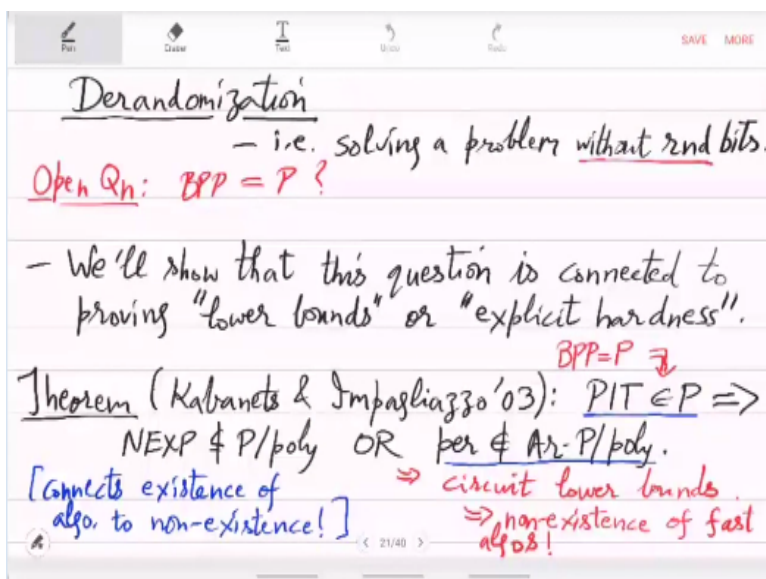 Pen Eraser Text Undo Redo SAVE MORE
Derandomization
– i.e. solving a problem without rnd bits.
Open Qn: BPP = P ?
– We'll show that this question is connected to
proving "lower bounds" or "explicit hardness".
BPP=P ⇒
Theorem (Kabanets & Impagliazzo '03): PIT ∈ P =>
NEXP ⊄ P/poly OR per ∉ Ar-P/poly.
[Connects existence of
algo. to non-existence!]
⇒ circuit lower bounds.
⇒ non-existence of fast
algos!
< 21/40 >